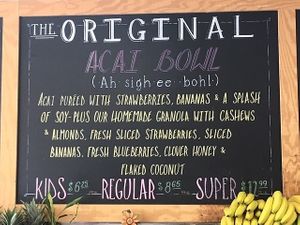 THE ORIGINAL
ACAI BOWL
(Ah·sigh·ee··bohl·)
ACAI PUREED WITH STRAWBERRIES, BANANAS & A SPLASH
OF SOY-PLUS OUR HOMEMADE GRANOLA WITH CASHEWS
& ALMONDS, FRESH SLICED STRAWBERRIES, SLICED
BANANAS, FRESH BLUEBERRIES, CLOVER HONEY &
FLAKED COCONUT
KIDS $6.25 REGULAR $8.65 SUPER $12.99